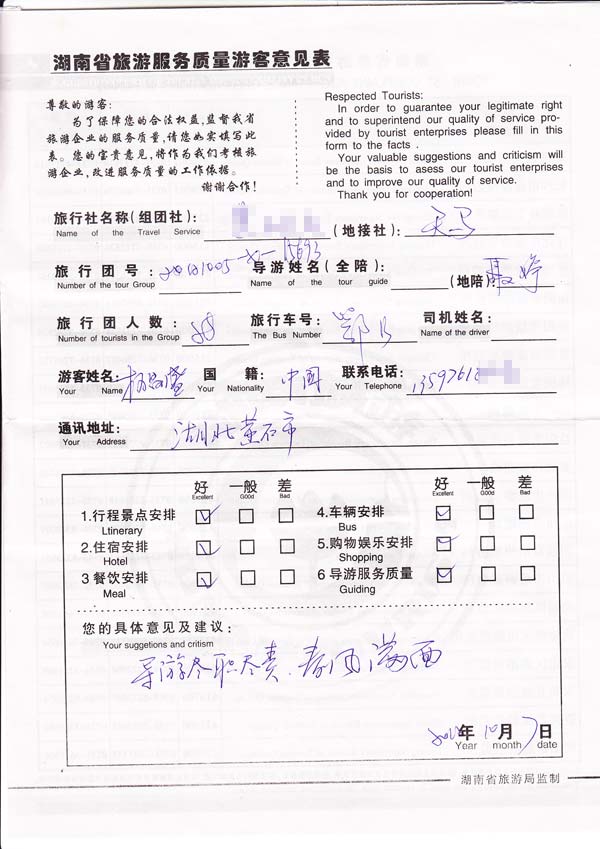 湖南省旅游服务质量游客意见表
尊敬的游客:
为了保障您的合法权益,监督我省
旅游企业的服务质量,请您如实填写此
表。您的宝贵意见,将作为我们考核旅
游企业,改进服务质量的工作依据。
谢谢合作!
Respected Tourists:
In order to guarantee your legitimate right
and to superintend our quality of service pro-
vided by tourist enterprises please fill in this
form to the facts .
Your valuable suggestions and criticism will
be the basis to assess our tourist enterprises
and to improve our quality of service.
Thank you for cooperation!
旅行社名称(组团社): (地接社): 天马
Name of the Travel Service
旅行团号: 导游姓名(全陪) (地陪) 聂婷
Number of the tour Group Name of the tour guide
旅行团人数: 旅行车号: 鄂 司机姓名:
Number of tourists in the Group The Bus Number Name of the driver
游客姓名: 国籍: 中国 联系电话: 1359761
Your Name Your Nationality Your Telephone
通讯地址: 湖北黄石市
Your Address
好 一般 差 好 一般 差
Excellent Good Bad Excellent Good Bad
1.行程景点安排 4.车辆安排
Ltinerary Bus
2.住宿安排 5.购物娱乐安排
Hotel Shopping
3 餐饮安排 6 导游服务质量
Meal Guiding
您的具体意见及建议:
Your suggetions and critism
导游尽职尽责、春风满面
年 10 月 7 日
Year month date
湖南省旅游局监制